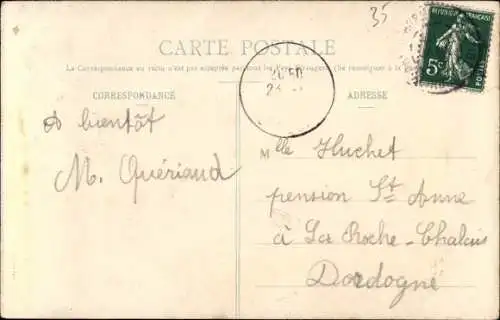 35
RÉPUBLIQUE FRANÇAISE
5c
POSTES
CARTE POSTALE
La Correspondance au recto n'est pas acceptée par tous les Pays Étrangers (Se renseigner à la
CORRESPONDANCE
ADRESSE
à bientôt
M. Quériaud
Mlle Huchet
pension St Anne
à La Roche-Chalais
Dordogne